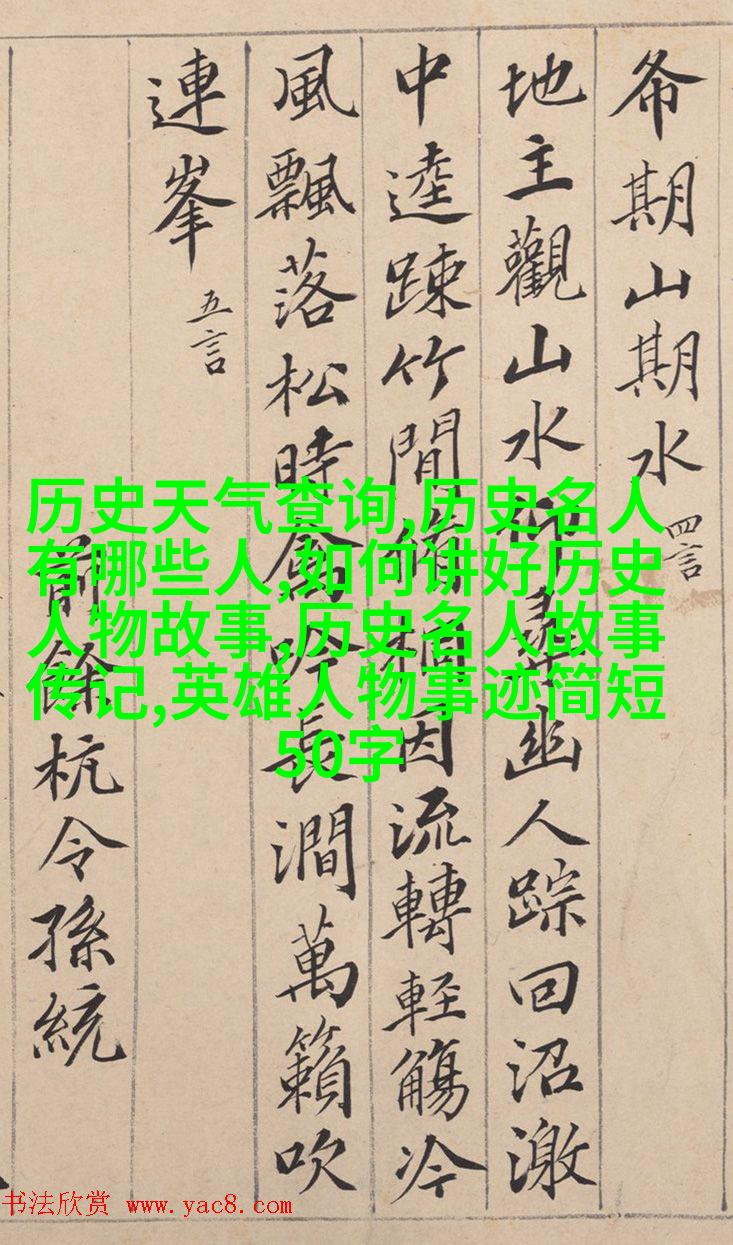 希期山期水 四言
地主觀山水仰尋幽人踪回沼激
中逵踈竹間脩桐因流轉輕觴冷
風飄落松時禽吟長澗萬籟吹
連峯 五言
前餘杭令孫統
历史天气查询,历史名人
有哪些人,如何讲好历史
人物故事,历史名人故事
传记,英雄人物事迹简短
50字
书法欣赏 www.yac8.com